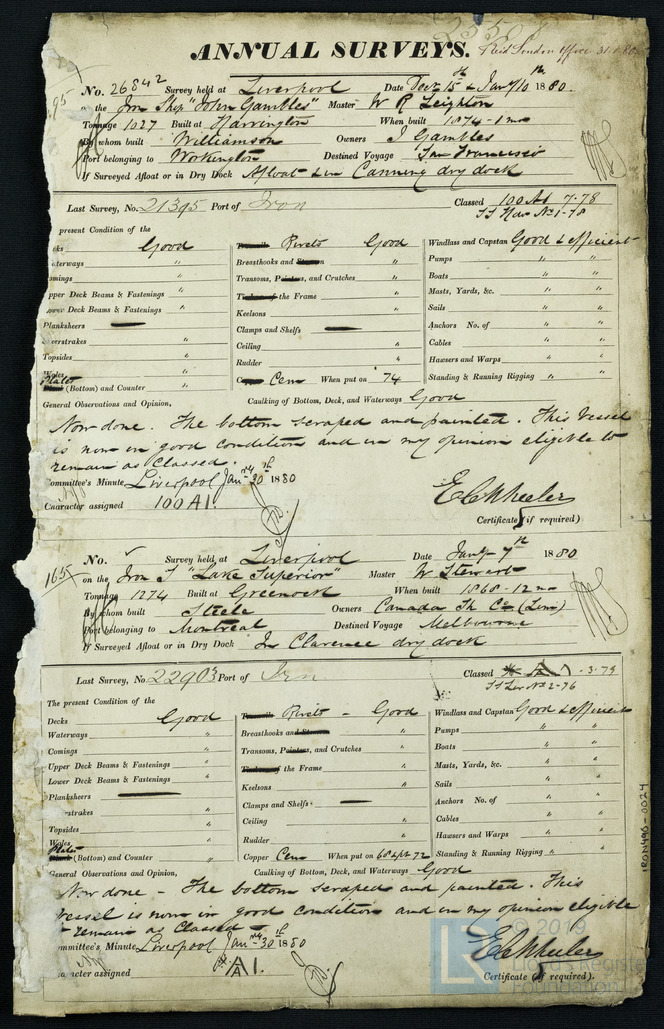 ANNUAL SURVEYS. Recd London Office 31.1.80
No. 26842 Survey held at Liverpool Date Decr 15th & Jany 10th 1880.
on the Iron Ship "John Gambles" Master W R Leighton
Tonnage 1027 Built at Harrington When built 1874-1 mo
By whom built Williamson Owners J Gambles
Port belonging to Workington Destined Voyage San Francisco
If Surveyed Afloat or in Dry Dock Afloat & in Canning dry dock
Last Survey, No. 21395 Port of Iron Classed 100 A1 7.78
No 1-78
present Condition of the
Good Rivets Good Windlass and Capstan Good & efficient
aterways " Breasthooks and " Pumps " "
omings " Transoms, Pointers, and Crutches " Boats " "
pper Deck Beams & Fastenings " the Frame " Masts, Yards, &c. " "
ower Deck Beams & Fastenings " Keelsons " Sails " "
Planksheers — Clamps and Shelfs — Anchors No. of " "
eerstrakes " Ceiling " Cables " "
Topsides " Rudder " Hawsers and Warps " "
Wales "
Plates (Bottom) and Counter " Cem When put on '74 Standing & Running Rigging " "
General Observations and Opinion, Caulking of Bottom, Deck, and Waterways Good
Now done. The bottom scraped and painted. This Vessel
is now in good condition and in my opinion eligible to
remain as Classed.
ommittee's Minute Liverpool Jany 30th 1880
Character assigned 100 A1. E C Wheeler
Certificate (if required)
No. Survey held at Liverpool Date Jany 7th 1880
165
on the Iron S "Lake Superior" Master W. Stewart
Tonnage 1274 Built at Greenock When built 1868-12 mo
By whom built Steele Owners Canada Sh Co (Lim)
Port belonging to Montreal Destined Voyage Melbourne
If Surveyed Afloat or in Dry Dock In Clarence dry dock
Last Survey, No. 22903 Port of Iron Classed A 1 .3.79
No 2-76
The present Condition of the
Decks Good Rivets - Good Windlass and Capstan Good & efficient
Waterways " Breasthooks and " Pumps " "
Comings " Transoms, Pointers, and Crutches " Boats " "
Upper Deck Beams & Fastenings " the Frame " Masts, Yards, &c. " "
Lower Deck Beams & Fastenings " Keelsons " Sails " "
Planksheers — Clamps and Shelfs — Anchors No. of " "
erstrakes " Ceiling " Cables " "
Topsides " Rudder " Hawsers and Warps " "
Wales "
Plates (Bottom) and Counter " Copper Cem When put on 68 & pt 72 Standing & Running Rigging " "
General Observations and Opinion, Caulking of Bottom, Deck, and Waterways Good
Now done - The bottom scraped and painted. This
vessel is now in good condition and in my opinion eligible
remain as Classed -
ommittee's Minute Liverpool Jany 30th 1880
aracter assigned A 1. E C Wheeler
Certificate (if required).
IRON498-0024
2019
Lloyd's Register
Foundation